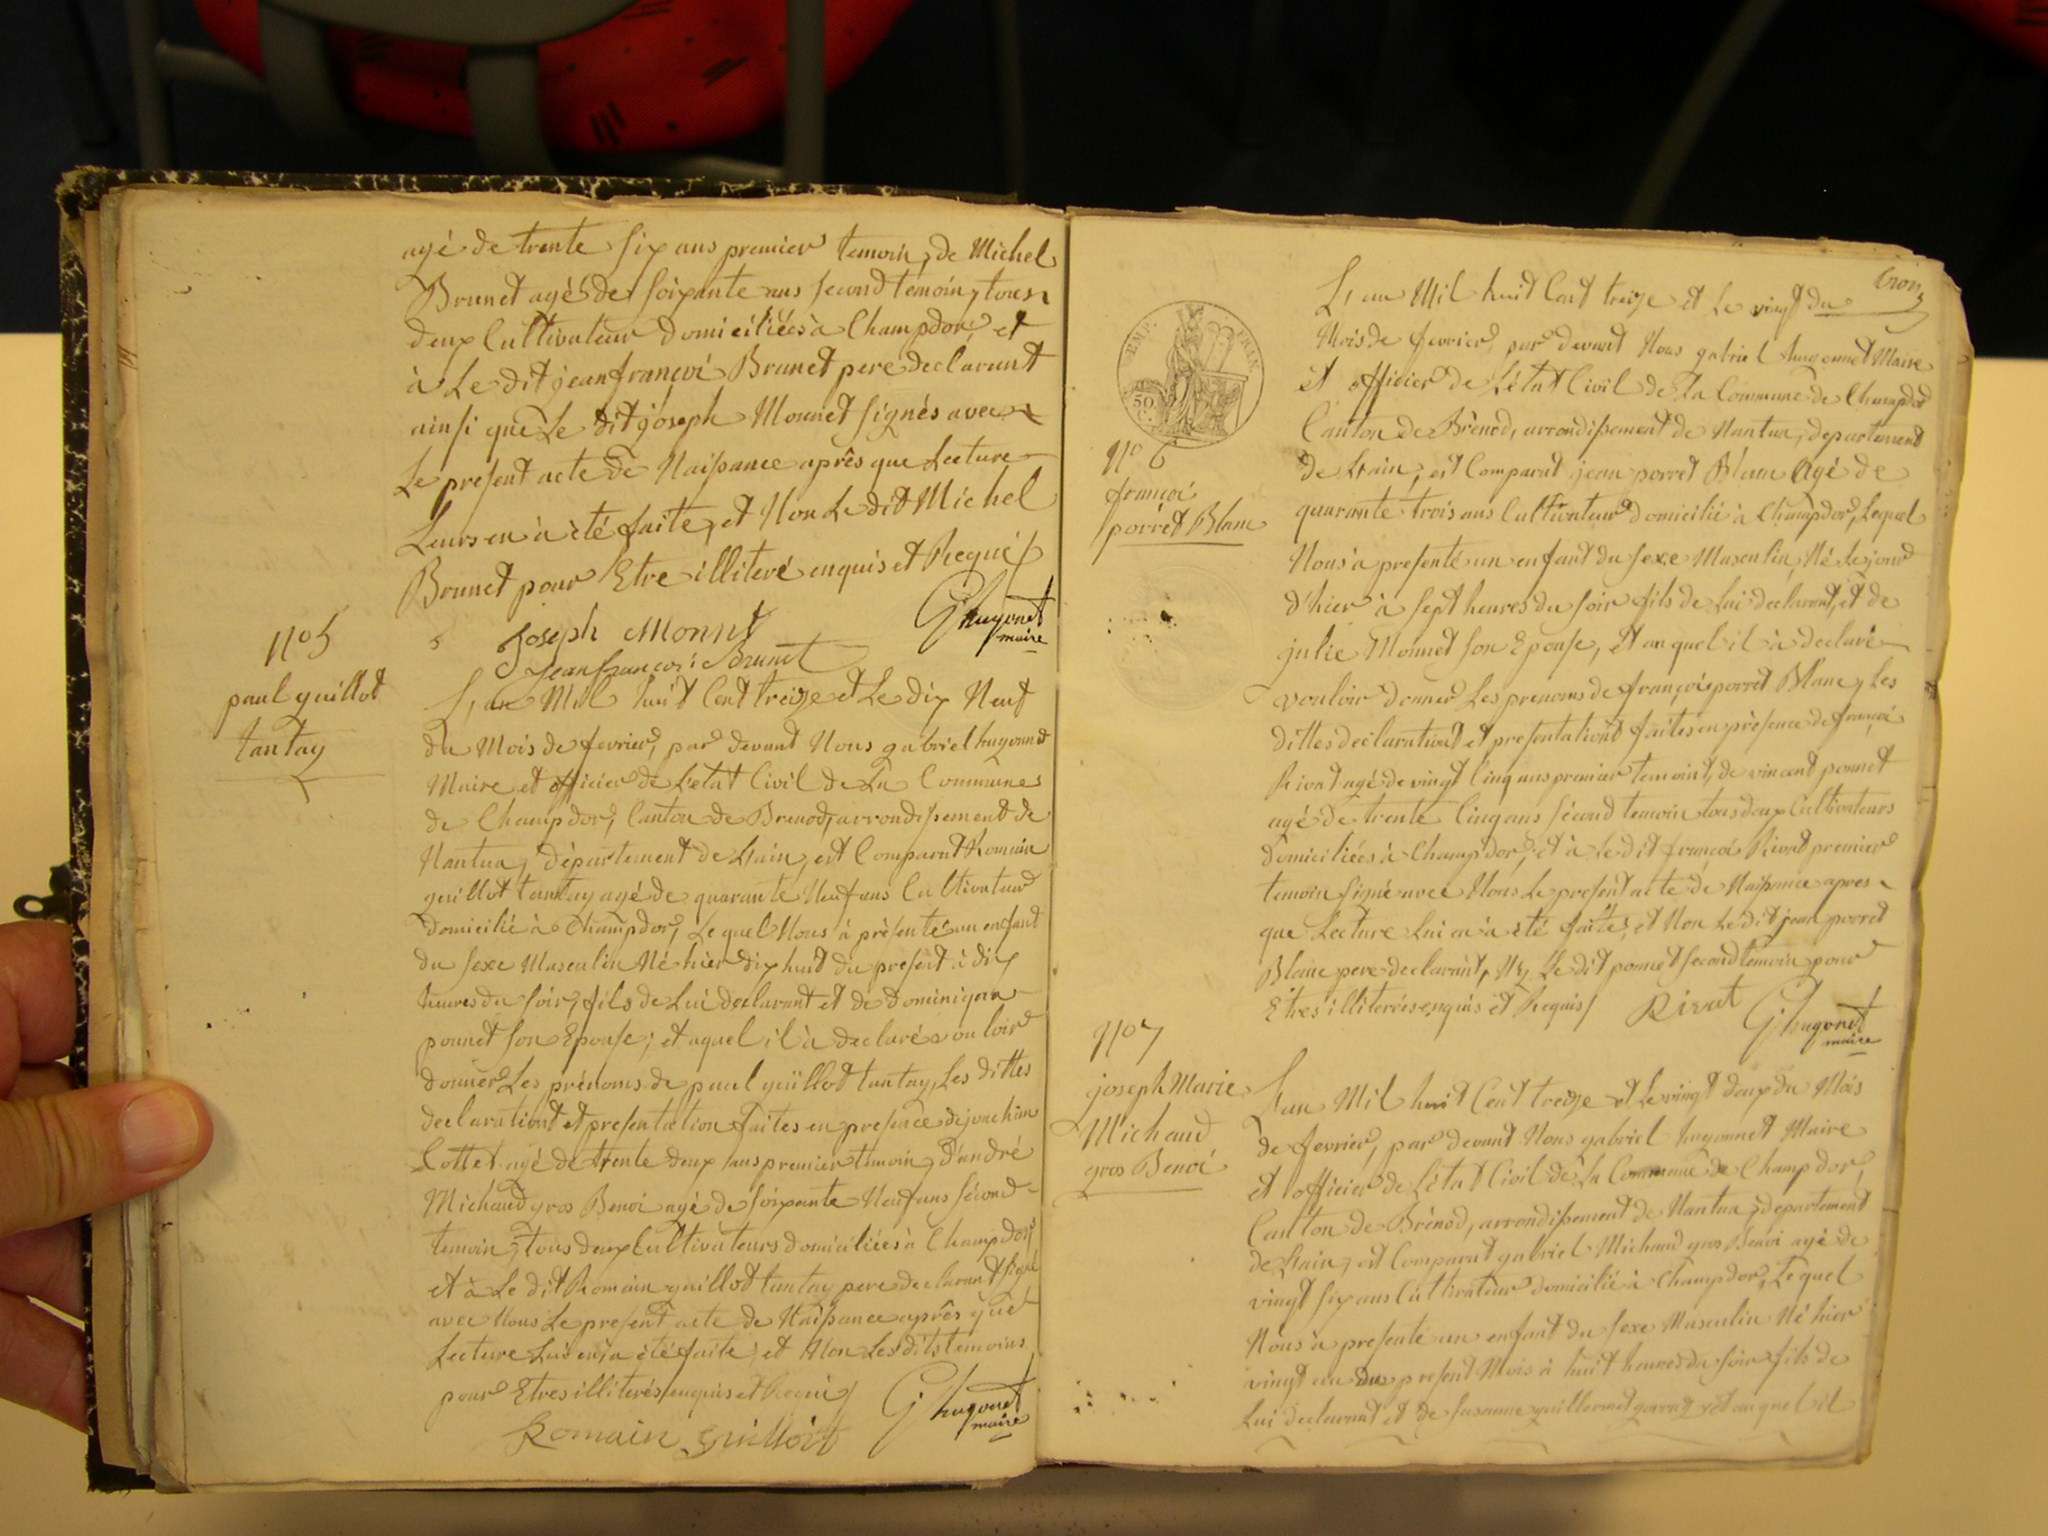 agé de trente six ans premier temoin, de Michel
Brunet agé de soixante ans second témoin, tous
deux Cultivateur domiciliées à Champdor, et
à Le dit jean françoi Brunet pere declarant
ainsi que Le dit joseph Monnet signés avec
Le présent acte de Naissance après que Lecture
Leurs en à été faite, et Non Le dit Michel
Brunet pour Etre illiteré enquis et Requis
G. hugonet
maire
Joseph Monnet
Jean françoi Brunet
No 5
paul guillot
tantay
L'an Mil huit Cent treize et Le dix Neuf
du Mois de fevrier, par devant Nous gabriel hugonnet
Maire et officier de L'etat Civil de La Commune
de Champdor, Canton de Brenod, arrondissement de
Nantua, département de L'ain, est Comparut Romain
guillot tantay agé de quarante Neuf ans Cultivateur
domicilié à Champdor, Le quel Nous à présenté un enfant
du sexe Masculin Né hier dix huit du présent à dix
heures du soir, fils de Lui declarant et de dominique
ponnet son Epouse; et aquel il à declaré vouloir
donner Les prénoms de paul guillot tantay, Les dittes
declarationt et presentation faites en presence de joachim
Cottet agé de trente deux ans premier temoin, d'andré
Michaud gros Benoi agé de soixante Neuf ans second
temoin, tous deux Cultivateurs domiciliées à Champdor,
et à Le dit Romain guillot tantay pere declarant signé
avec Nous Le present acte de Naissance après que
Lecture Lui en a été faite, et Non Les dits temoins
pour Etres illiterés enquis et Requis
G. hugonet
maire
Romain Guillot
trois
EMP. FRAN.
50
C.
No 6
françoi
porret Blanc
L'an Mil huit Cent treize et Le vingt du
Mois de fevrier, par devant Nous gabriel hugonnet Maire
et officier de L'état Civil de La Commune de Champdor
Canton de Brénod, arrondissement de Nantua, departement
de L'ain, est Comparut jean porret Blanc Agé de
quarante trois ans Cultivateur domicilié à Champdor, Lequel
Nous à presenté un enfant du sexe Masculin, Né Le jour
d'hier à sept heures du soir fils de Lui declarant, et de
julie Monnet son Epouse, et au quel il à declaré
vouloir donner Les prenoms de françoi porret Blanc, Les
dittes declarationt et presentationt faites en présence de françoi
Rivat agé de vingt Cinq ans premier temoint, de vincent ponnet
agé de trente Cinq ans sécond temoin tous deux Cultivateurs
domiciliées à Champdor, et à Le dit françoi Rivat premier
temoin signé avec Nous Le present acte de Naissance apres
que Lecture Lui en à été faite, et Non Le dit jean porret
Blanc pere declarant, Ny Le dit ponnet second temoin pour
Etres illiterés enquis et Requis
Rivat
G. hugonet
maire
No 7
joseph Marie
Michaud
gros Benoi
L'an Mil huit Cent treize et Le vingt deux du Mois
de fevrier, par devant Nous gabriel hugonnet Maire
et officier de L'état Civil de La Commune de Champdor,
Canton de Brénod, arrondissement de Nantua, departement
de L'ain, est Comparut gabriel Michaud gros Benoi agé de
vingt six ans Cultivateur domicilié à Champdor, Le quel
Nous à presenté un enfant du sexe Masculin Né hier
vingt un du present Mois à huit heures du soir fils de
Lui declarant et de susanne guillermet et au quel il